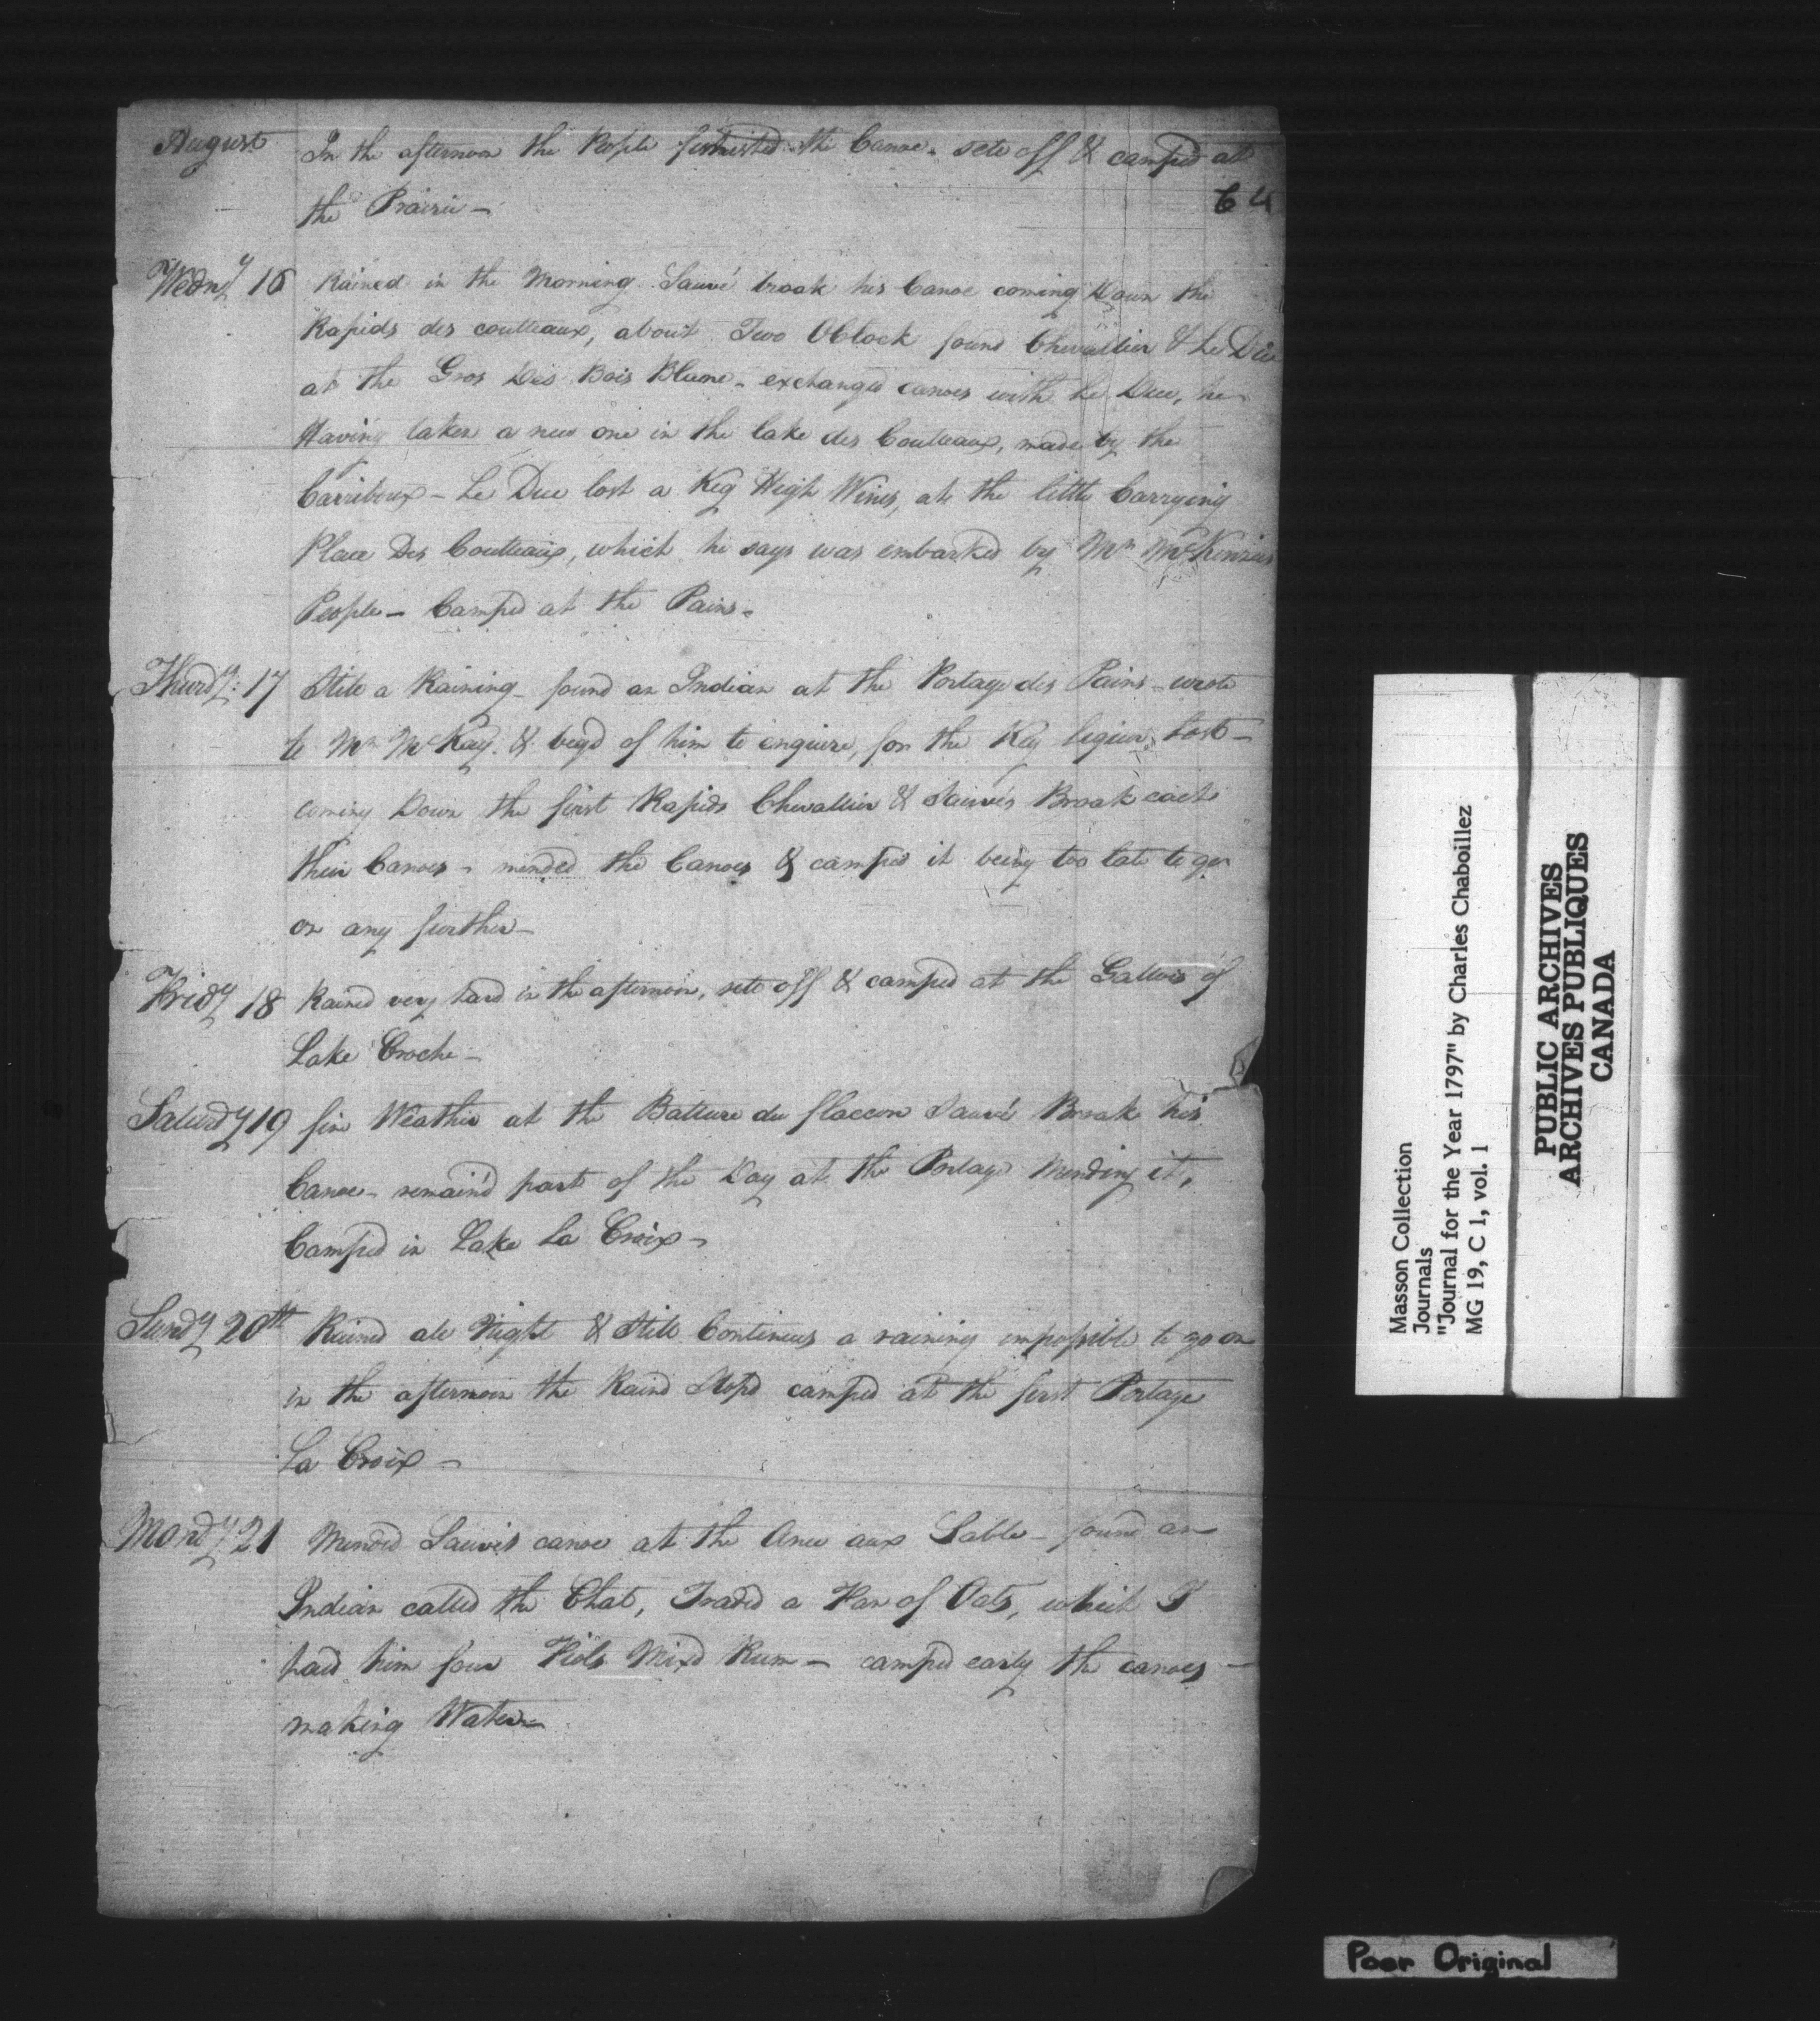 August In the afternoon the People finished the Canoe - sete off & camped at
64
the Prairie -
Wedny 16 Rained in the Morning Sauvé broak his Canoe coming Down the
Rapids des coutteaux, about Two OClock found Chevallier & Le Duc
at the Gros Des Bois Blanc - exchanged canoes with Le Duc, he
Having taken a new one in the lake des Coutteaux, made by the
Carriboux - Le Duc lost a Keg High Wines, at the little Carrying
Place Des Coutteaux, which he says was embarked by Mr McKenzies
People - Camped at the Pains -
Thurdy: 17 Still a Raining - found an Indian at the Portage des Pains - wrote
to Mr McKay. & begd of him to enquire, for the Keg liquor Lost -
coming Down the first Rapids Chevallier & Sauvés Broak each
their Canoes - mended the Canoes & camped it being too late to go
on any further -
Fridy 18 Rained very hard in the afternoon, sete off & camped at the Gallais of
Lake Croche -
Saturdy 19 fine Weather at the Batture du flaccon Sauvé Broak his
Canoe - remaind part of the Day at the Portage Mending it,
Camped in Lake La Croix -
Sundy 20th Rained all Night & Still Continues a raining impossible to go on
in the afternoon the Raind Stopd camped at the first Portage
La Croix -
Mondy 21 Mended Sauvés canoe at the Ance aux Sable - found an
Indian called the Chat, Traded a Fan of Oats, which I
paid him four Fiols Mixd Rum - camped early the canoes -
making Water -
Masson Collection
Journals
"Journal for the Year 1797" by Charles Chaboillez
MG 19, C 1, vol. 1
PUBLIC ARCHIVES
ARCHIVES PUBLIQUES
CANADA
Poor Original